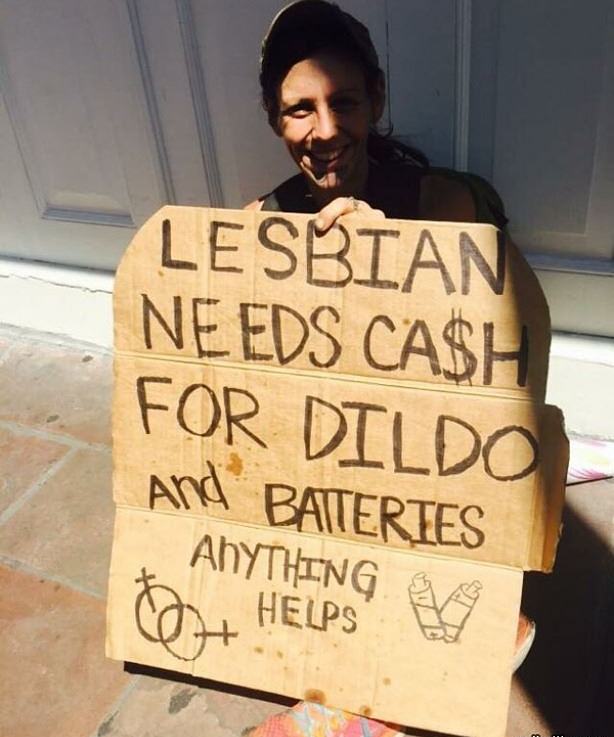 LESBIAN
NEEDS CA$H
FOR DILDO
And BATTERIES
AnYTHING
HELPS